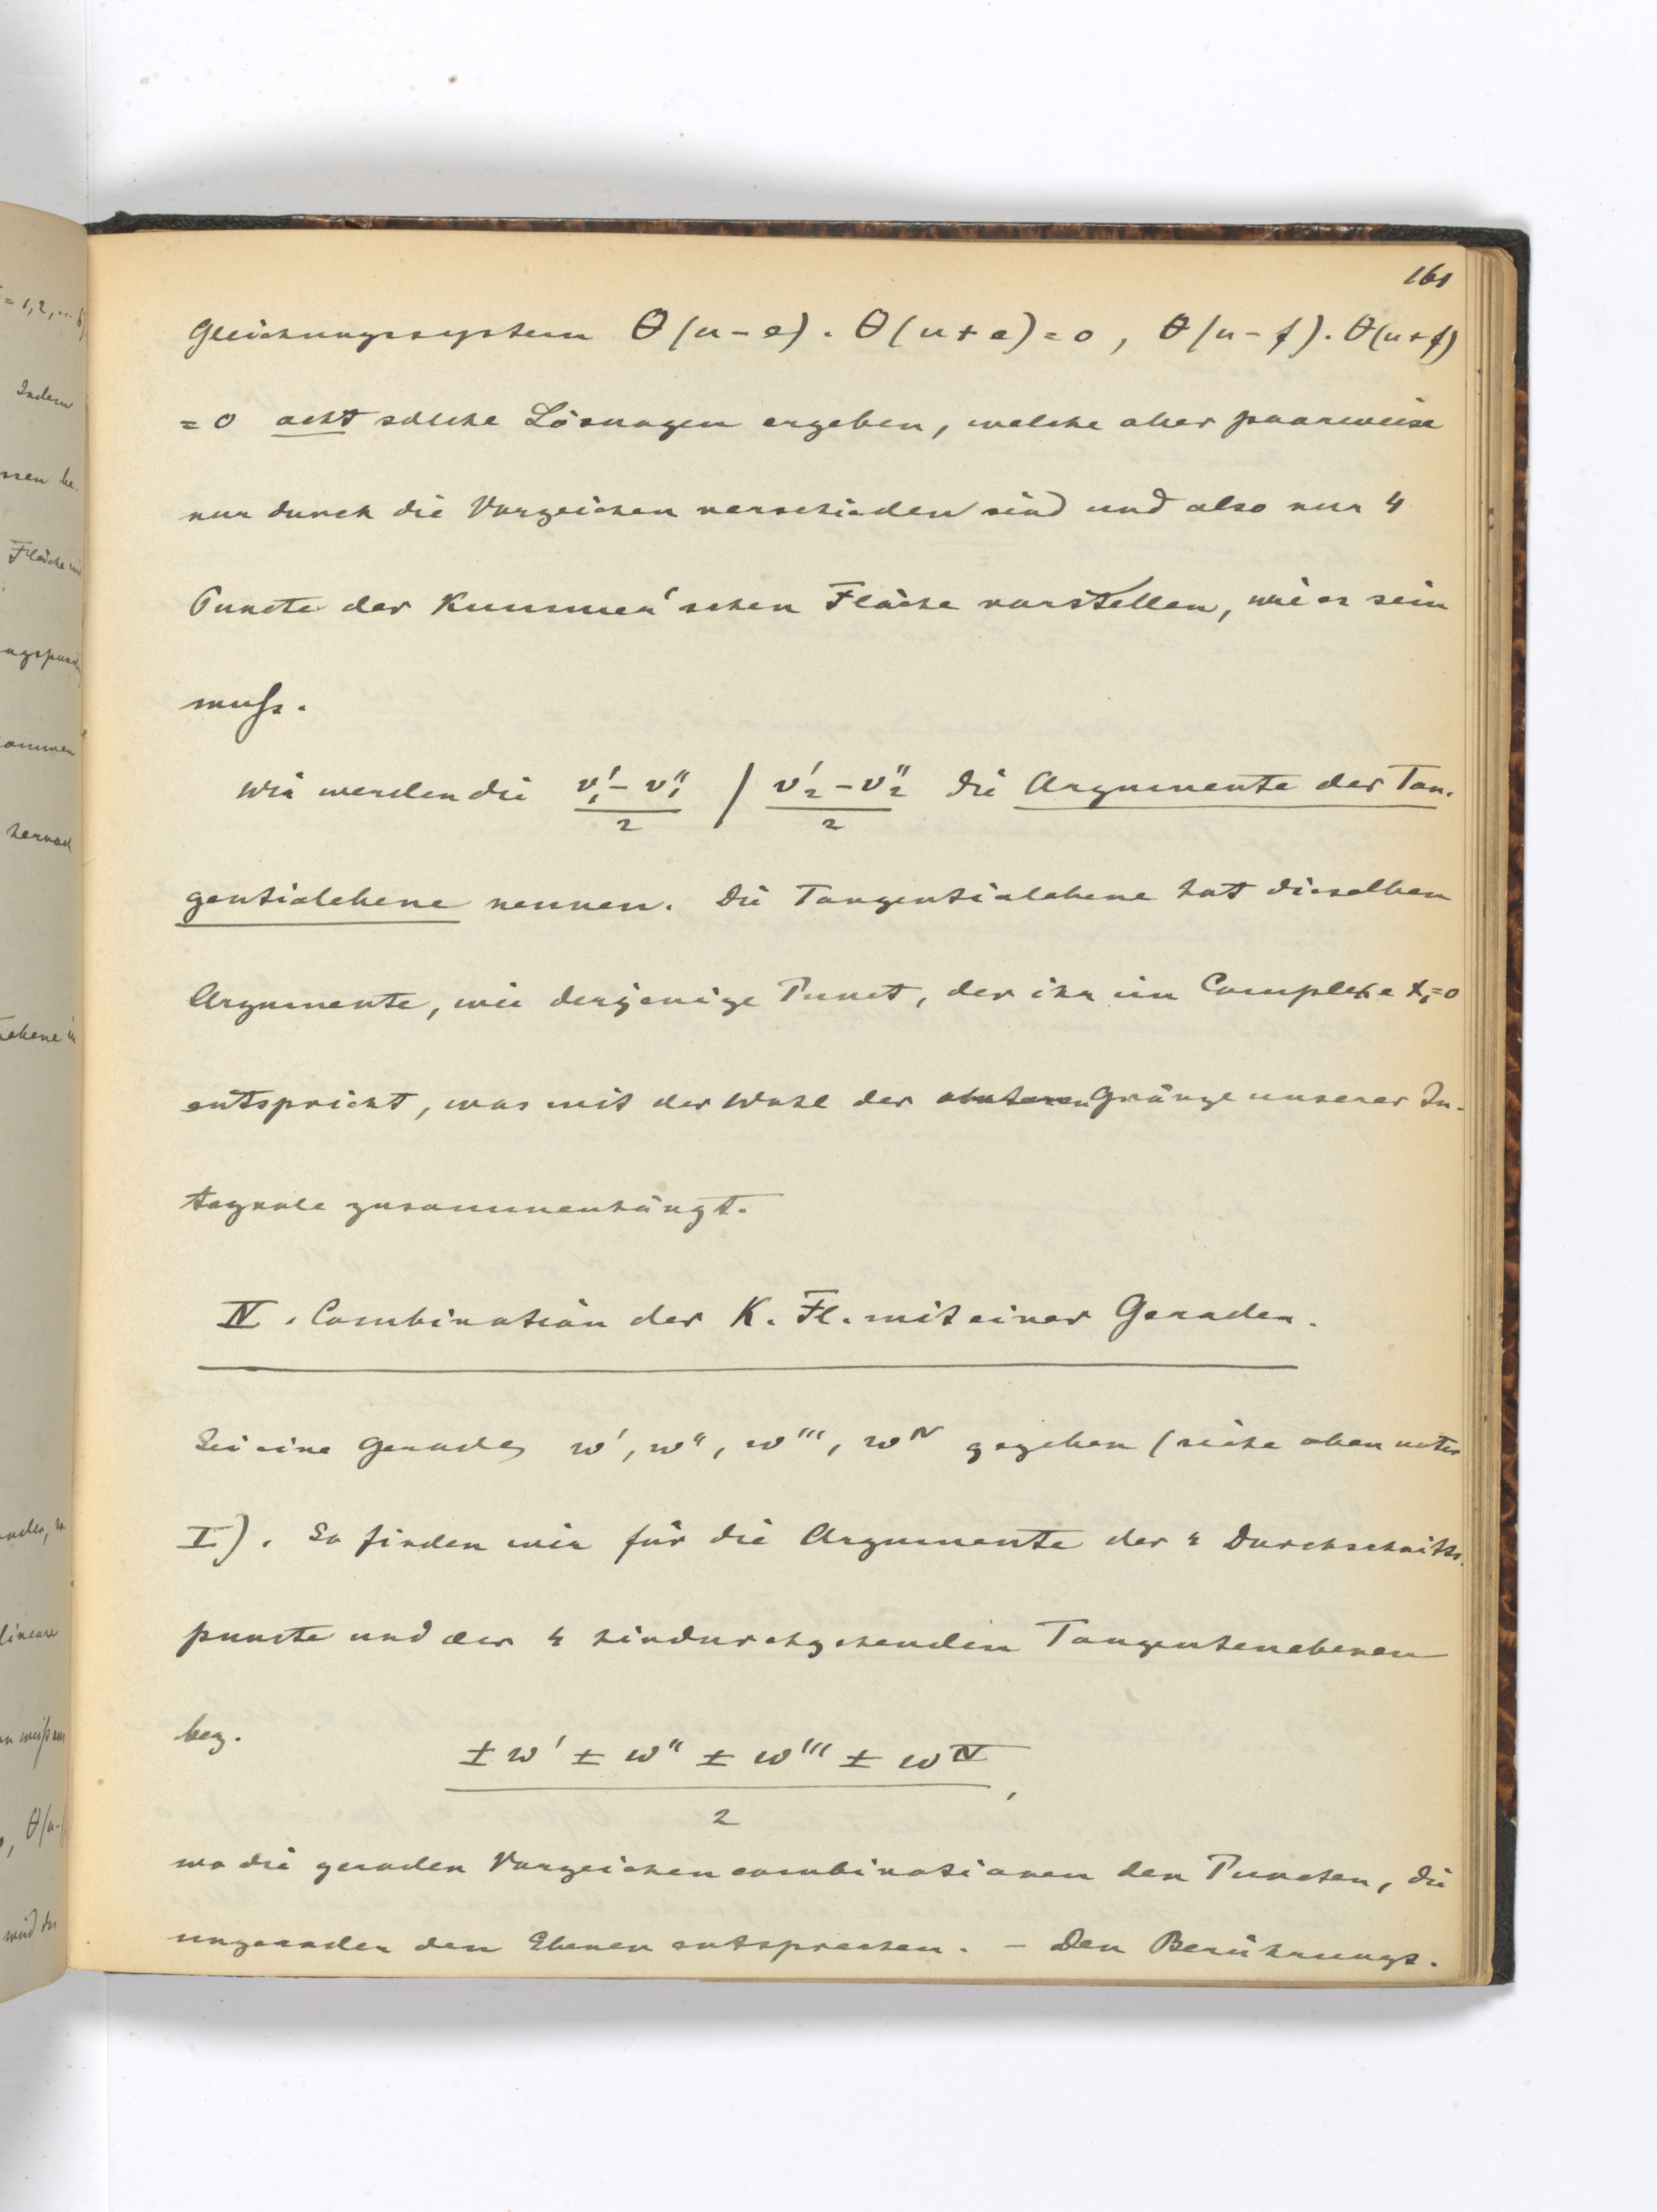 161
Gleichungssystem θ(u-e). θ(u+e)=0, θ(u-f). θ(u+f)
=0 acht solche Lösungen ergeben, welche aber paarweise
nur durch die Vorzeichen verschieden sind und also nur 4
Puncte der Kummer'schen Fläche vorstellen, wie es sein
muß.
Wir werden die (v₁'-v₁'')/2 / (v₂'-v₂'')/2 die Argumente der Tan-
gentialebene nennen. Die Tangentialebene hat dieselben
Argumente, wie derjenige Punct, der ihr im Complexe x₁=0
entspricht, was mit der Wahl der unteren Gränze unserer In-
tegrale zusammenhängt.
IV. Combination der K. Fl. mit einer Geraden.
Sei eine Gerade w', w'', w''', wIV gegeben (siehe oben unter
I). So finden wir für die Argumente der 4 Durchschnitts-
puncte und der 4 hindurchgehenden Tangentenebenen
bez.
(± w' ± w'' ± w''' ± wIV)/2,
wo die geraden Vorzeichencombinationen den Puncten, die
ungeraden den Ebenen entsprechen. - Den Berührungs-
= 1,2,...6)
Indem
ssen be-
Fläche
ommen
hernach
lineare
θ(u-
wird der